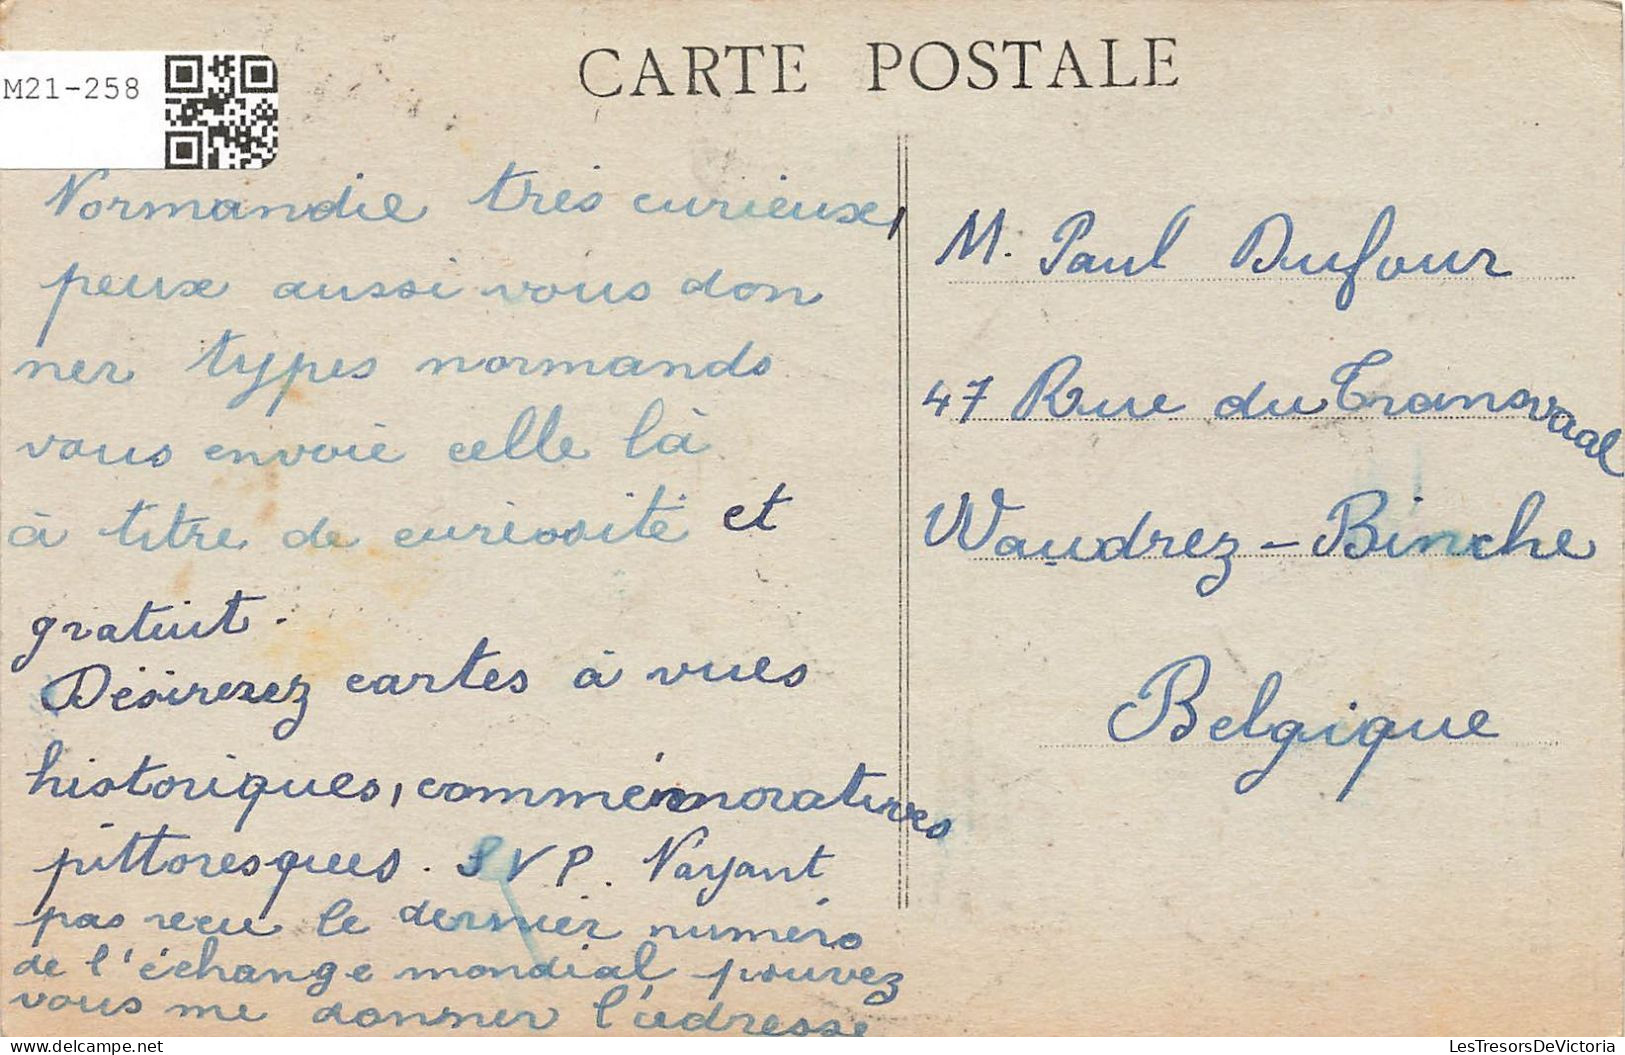 CARTE POSTALE
M21-258
Normandie très curieuse,
peux aussi vous don
ner types normands
vous envoie celle là
à titre de curiosité et
gratuit.
Désirerez cartes à vues
historiques, commémoratives
pittoresques. SVP. N'ayant
pas reçu le dernier numéro
de l'échange mondial pouvez
vous me donner l'adresse
M. Paul Dufour
47 Rue du Transvaal
Waudrez - Binche
Belgique
delcampe.net
LesTresorsDeVictoria